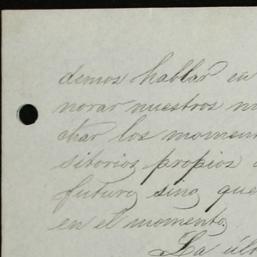 demos hablar en
norar nuestros m
char los momen
sitorios propios
futuro, sino, que
en el momento.
La últ